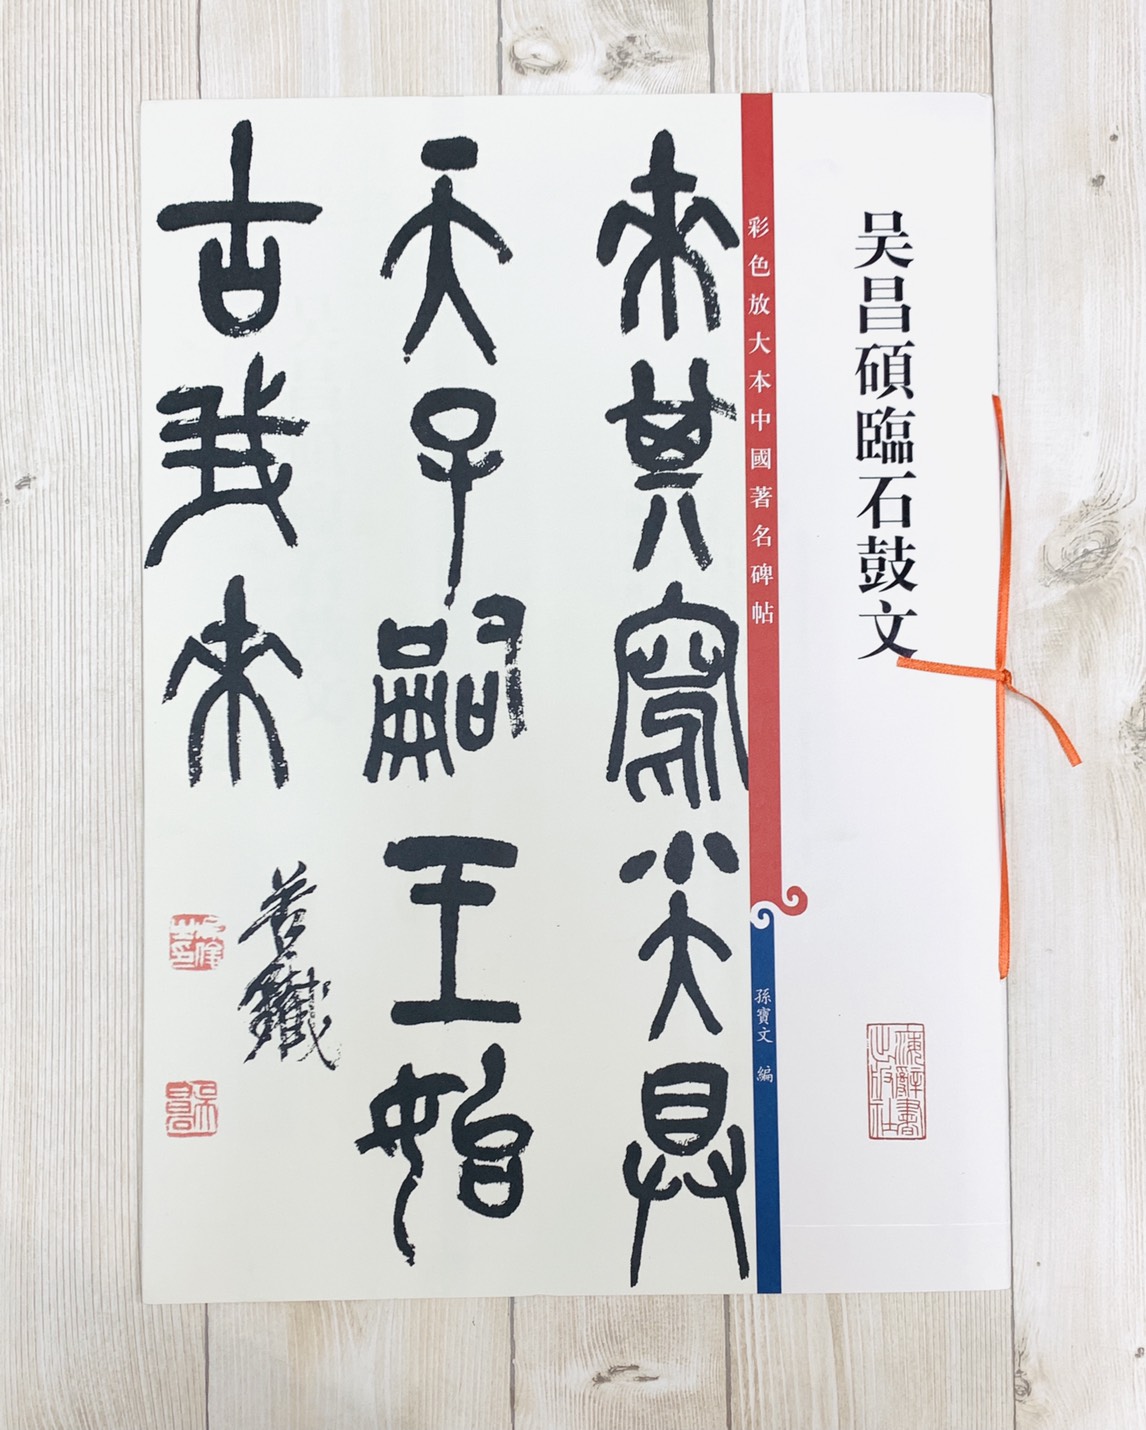 吴昌碩臨石鼓文
上海辭書出版社
彩色放大本中國著名碑帖
孫寶文 編
來其寫小大具
天子嗣王始
古我來
苦鐵